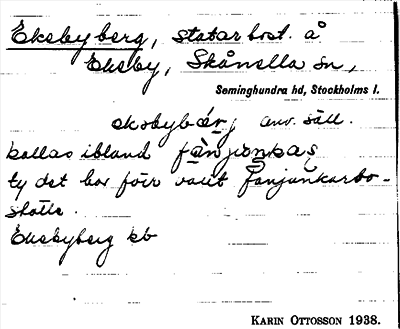 Eksbyberg, statarbost. å
Eksby, Skånella sn,
Seminghundra hd, Stockholms l.
eksbybær̨j, anv. säll.
kallas ibland fànjonkas,
ty det har förr varit fanjunkarbo-
ställe.
Eksbyberg kb
KARIN OTTOSSON 1938.